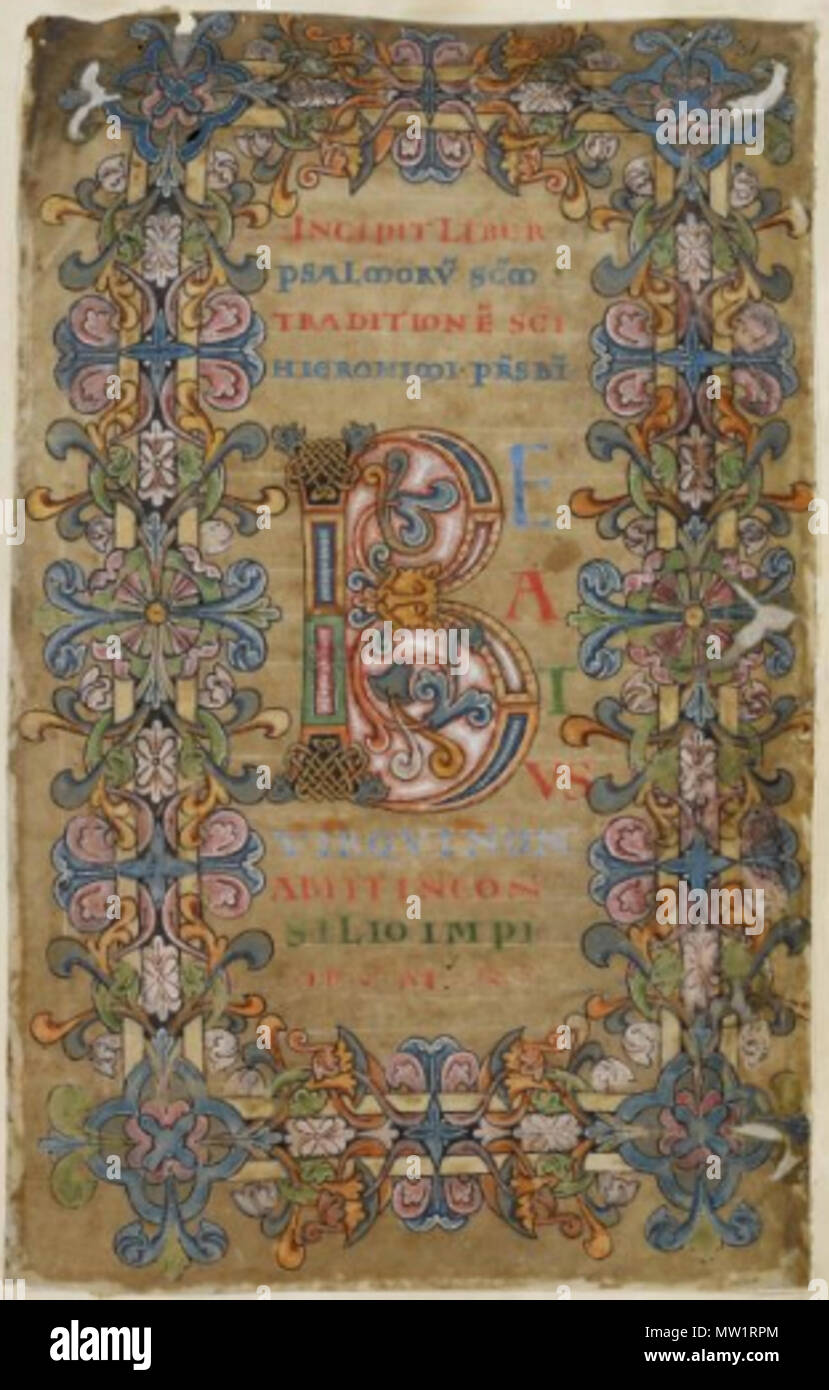 INCIPIT LIBER
PSALMORŪ SCDM
TRADITIONĒ SCI
HIERONIMI · PRSBI
B
E
A
T
VS
VIR QVI NON
ABIIT IN CON
SILIO IMPI
alamy
Image ID: MW1RPM
www.alamy.com